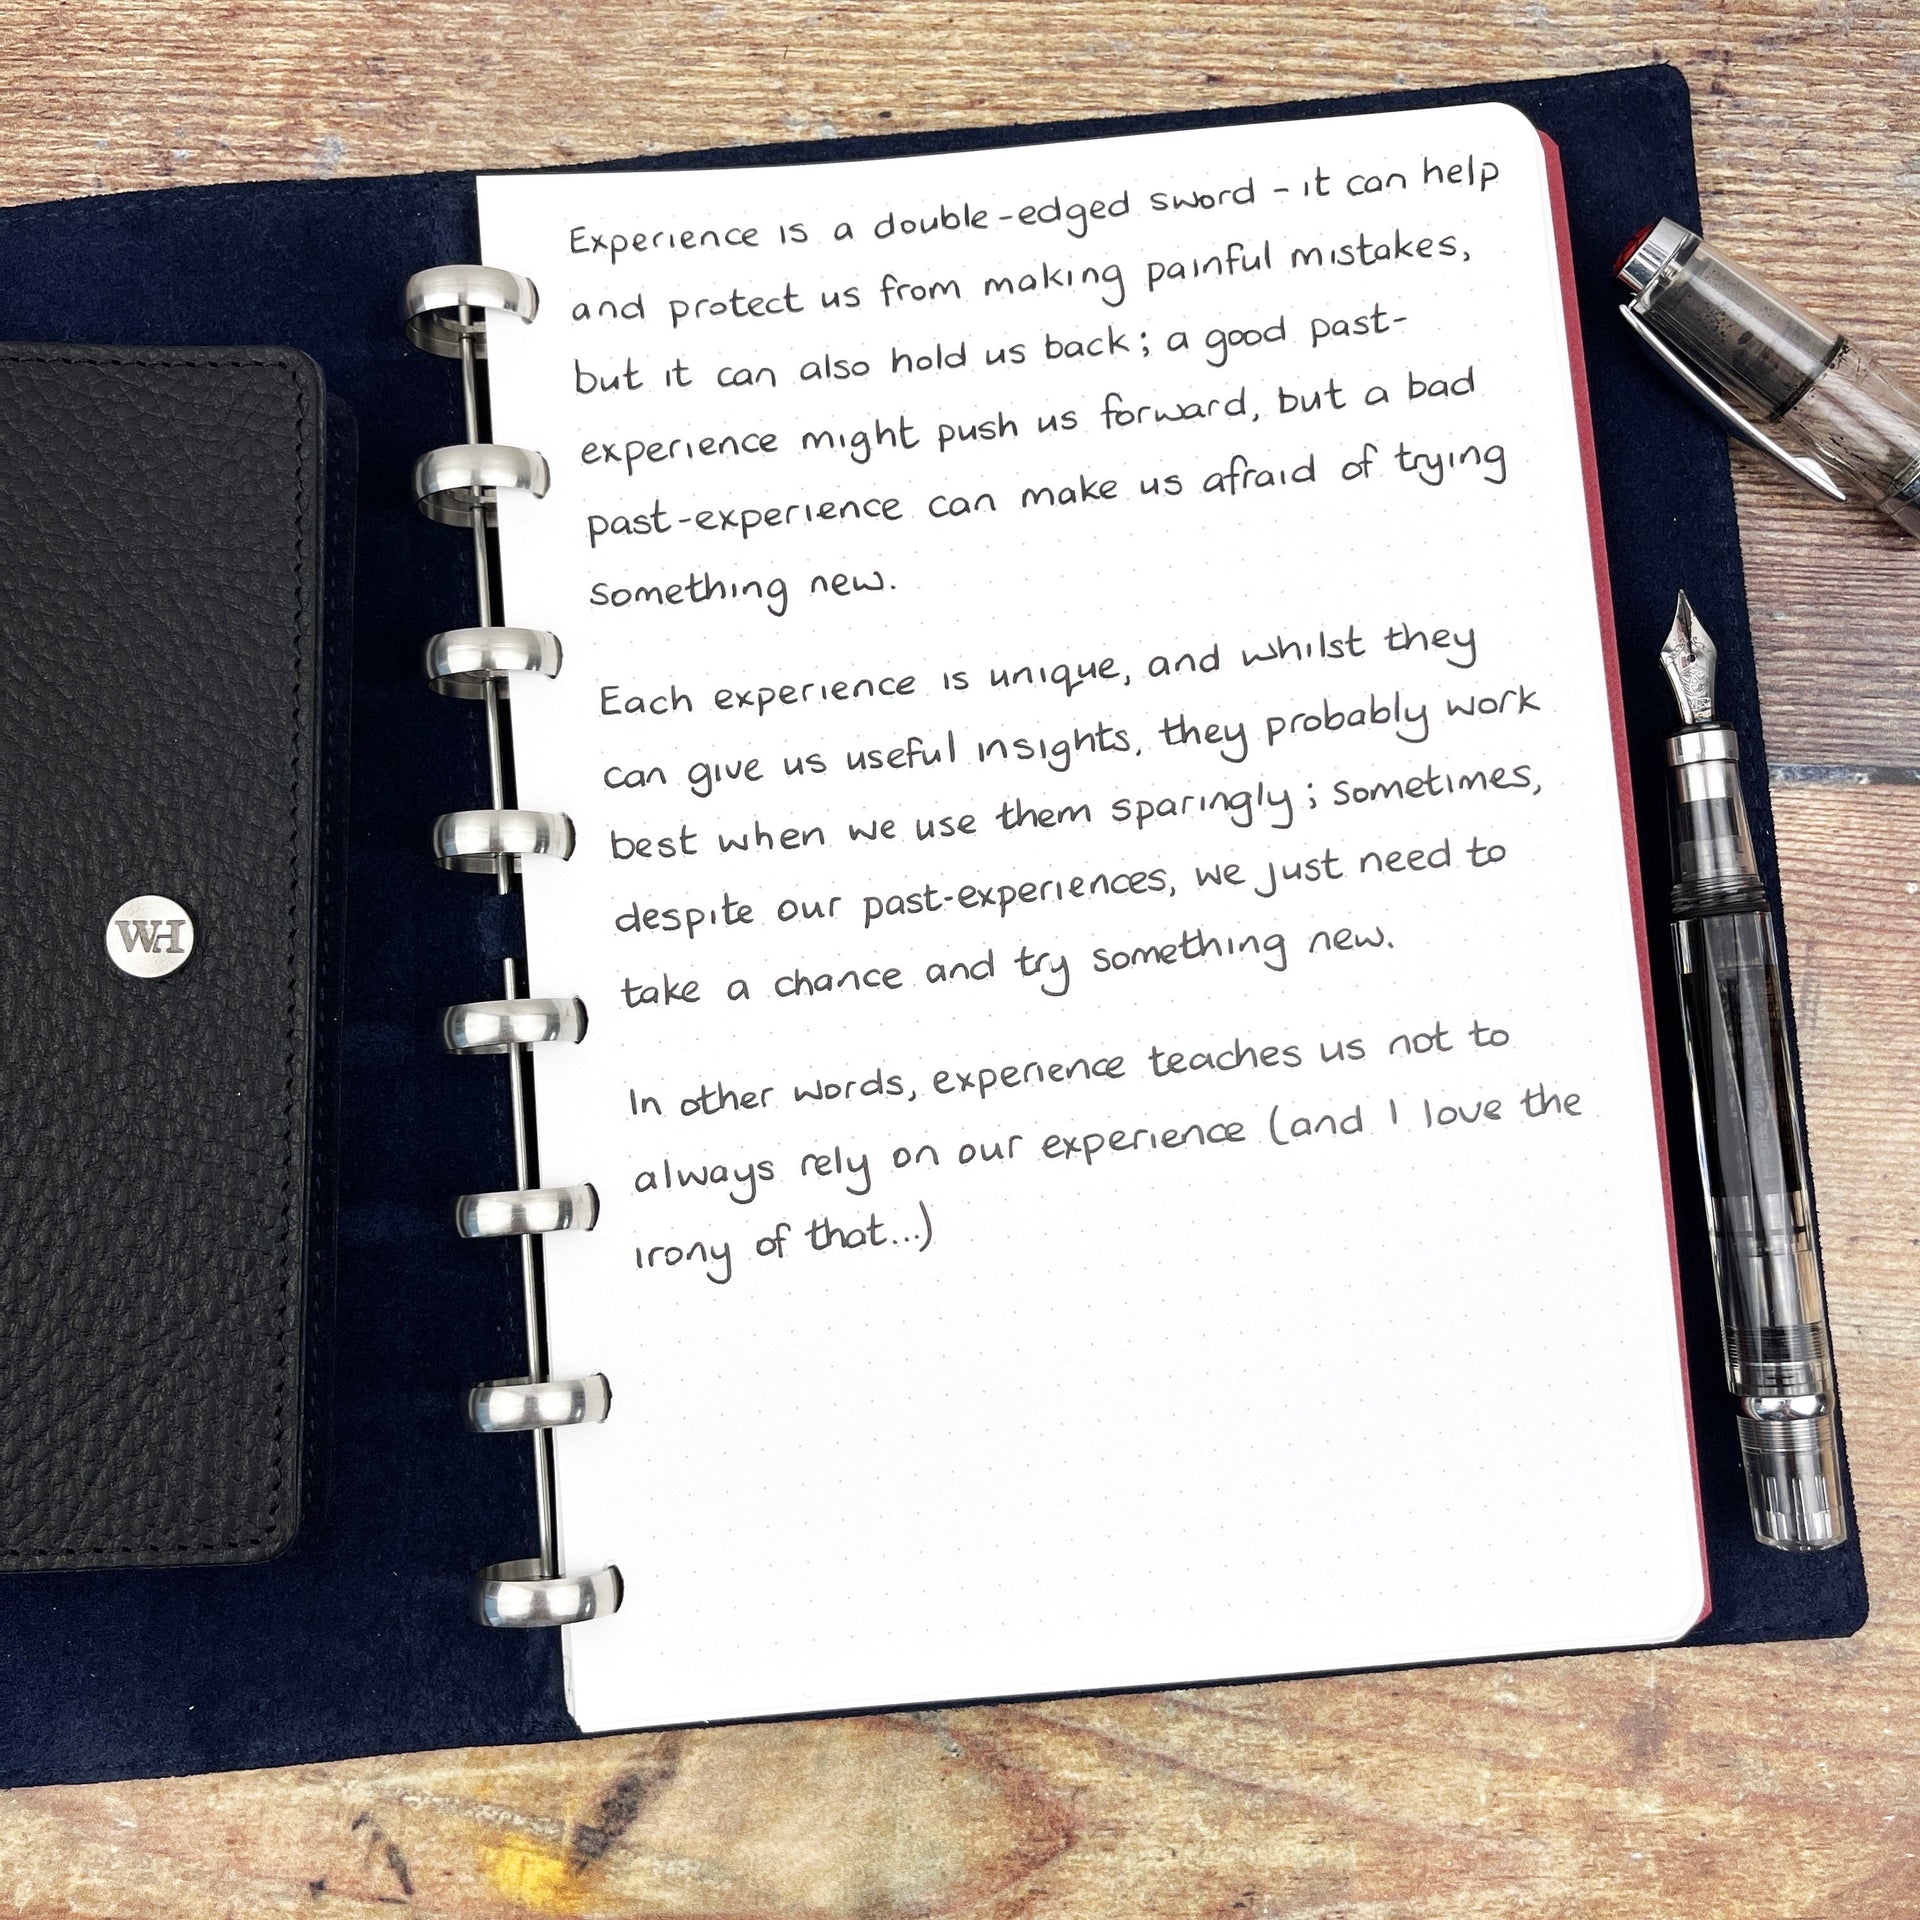 Experience is a double-edged sword - it can help
and protect us from making painful mistakes,
but it can also hold us back; a good past-
experience might push us forward, but a bad
past-experience can make us afraid of trying
something new.
Each experience is unique, and whilst they
can give us useful insights, they probably work
best when we use them sparingly; sometimes,
despite our past-experiences, we just need to
take a chance and try something new.
In other words, experience teaches us not to
always rely on our experience (and I love the
irony of that...)
WH